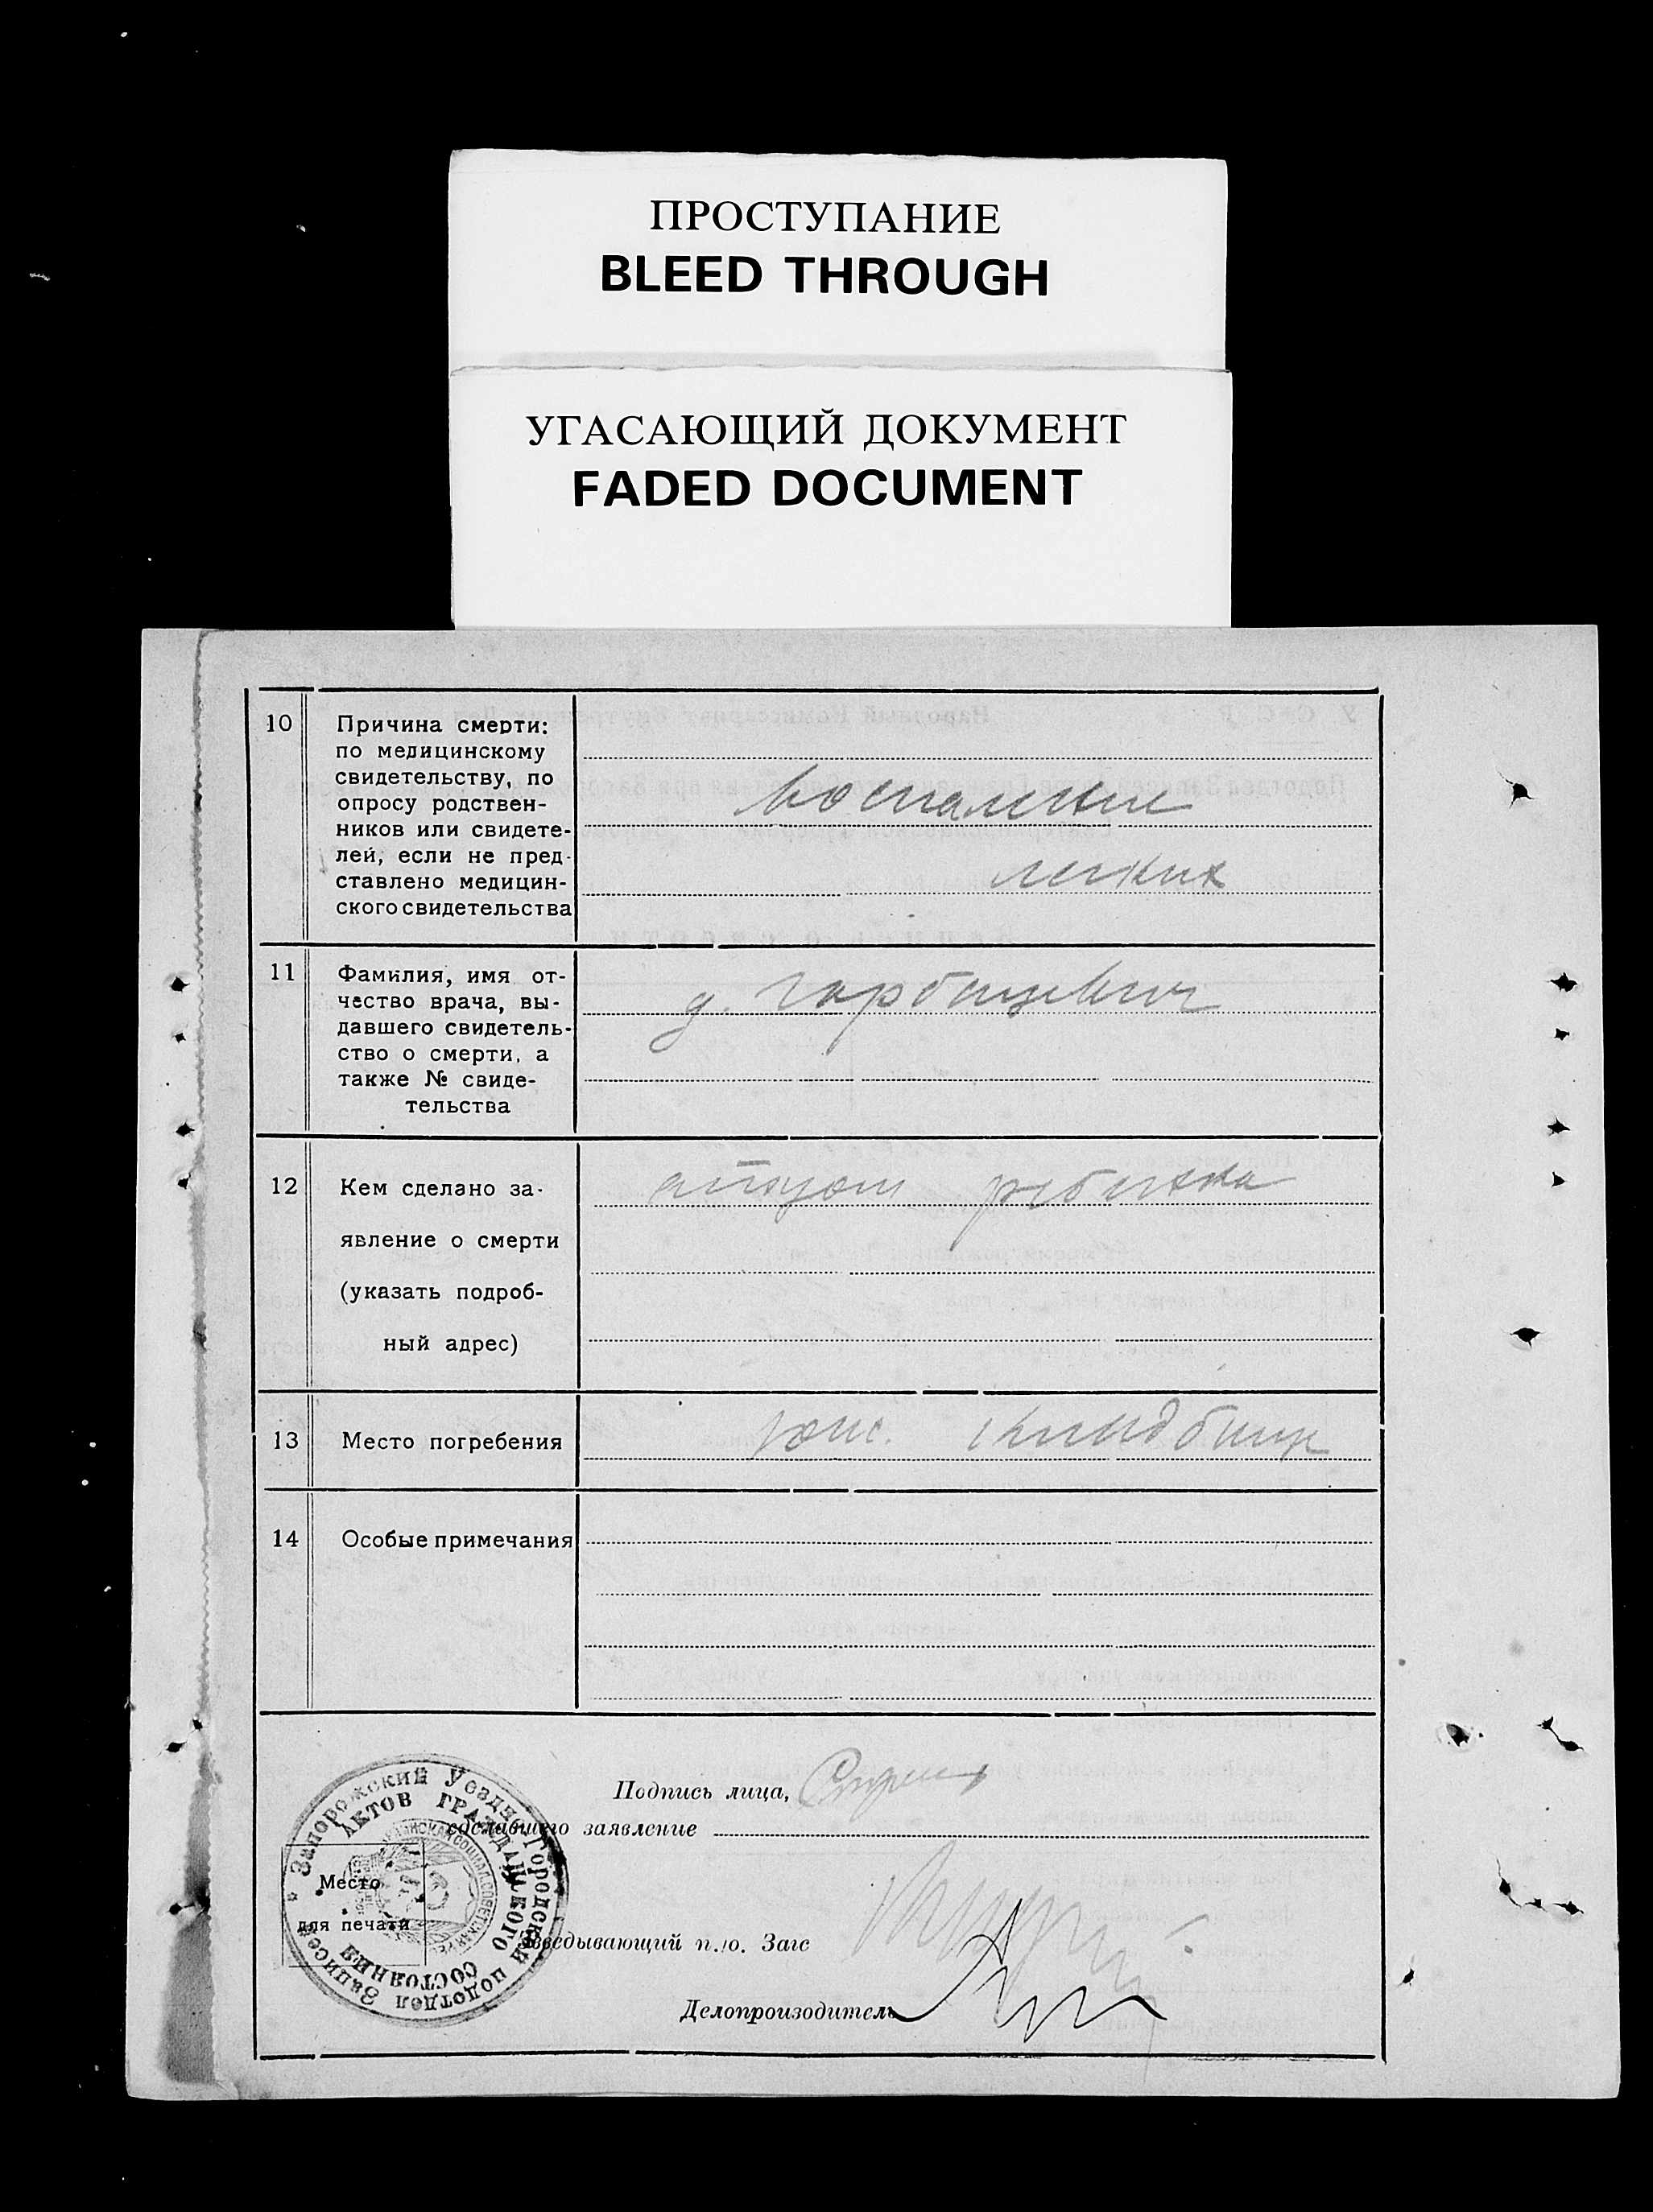 ПРОСТУПАНИЕ
BLEED THROUGH
УГАСАЮЩИЙ ДОКУМЕНТ
FADED DOCUMENT
10
Причина смерти:
по медицинскому
свидетельству, по
опросу родствен-
ников или свидете-
лей, если не пред-
ставлено медицин-
ского свидетельства
воспаление
легких
11
Фамилия, имя от-
чество врача, вы-
давшего свидетель-
ство о смерти, а
также № свиде-
тельства
12
Кем сделано за-
явление о смерти
(указать подроб-
ный адрес)
ребенка
13
Место погребения
кладбище
14
Особые примечания
Подпись лица,
сделавшего заявление
Место
для печати
Заведывающий п./о. Загс
Делопроизводитель
Запорожский Уездно-Городской подотдел Записей
АКТОВ ГРАЖДАНСКОГО СОСТОЯНИЯ